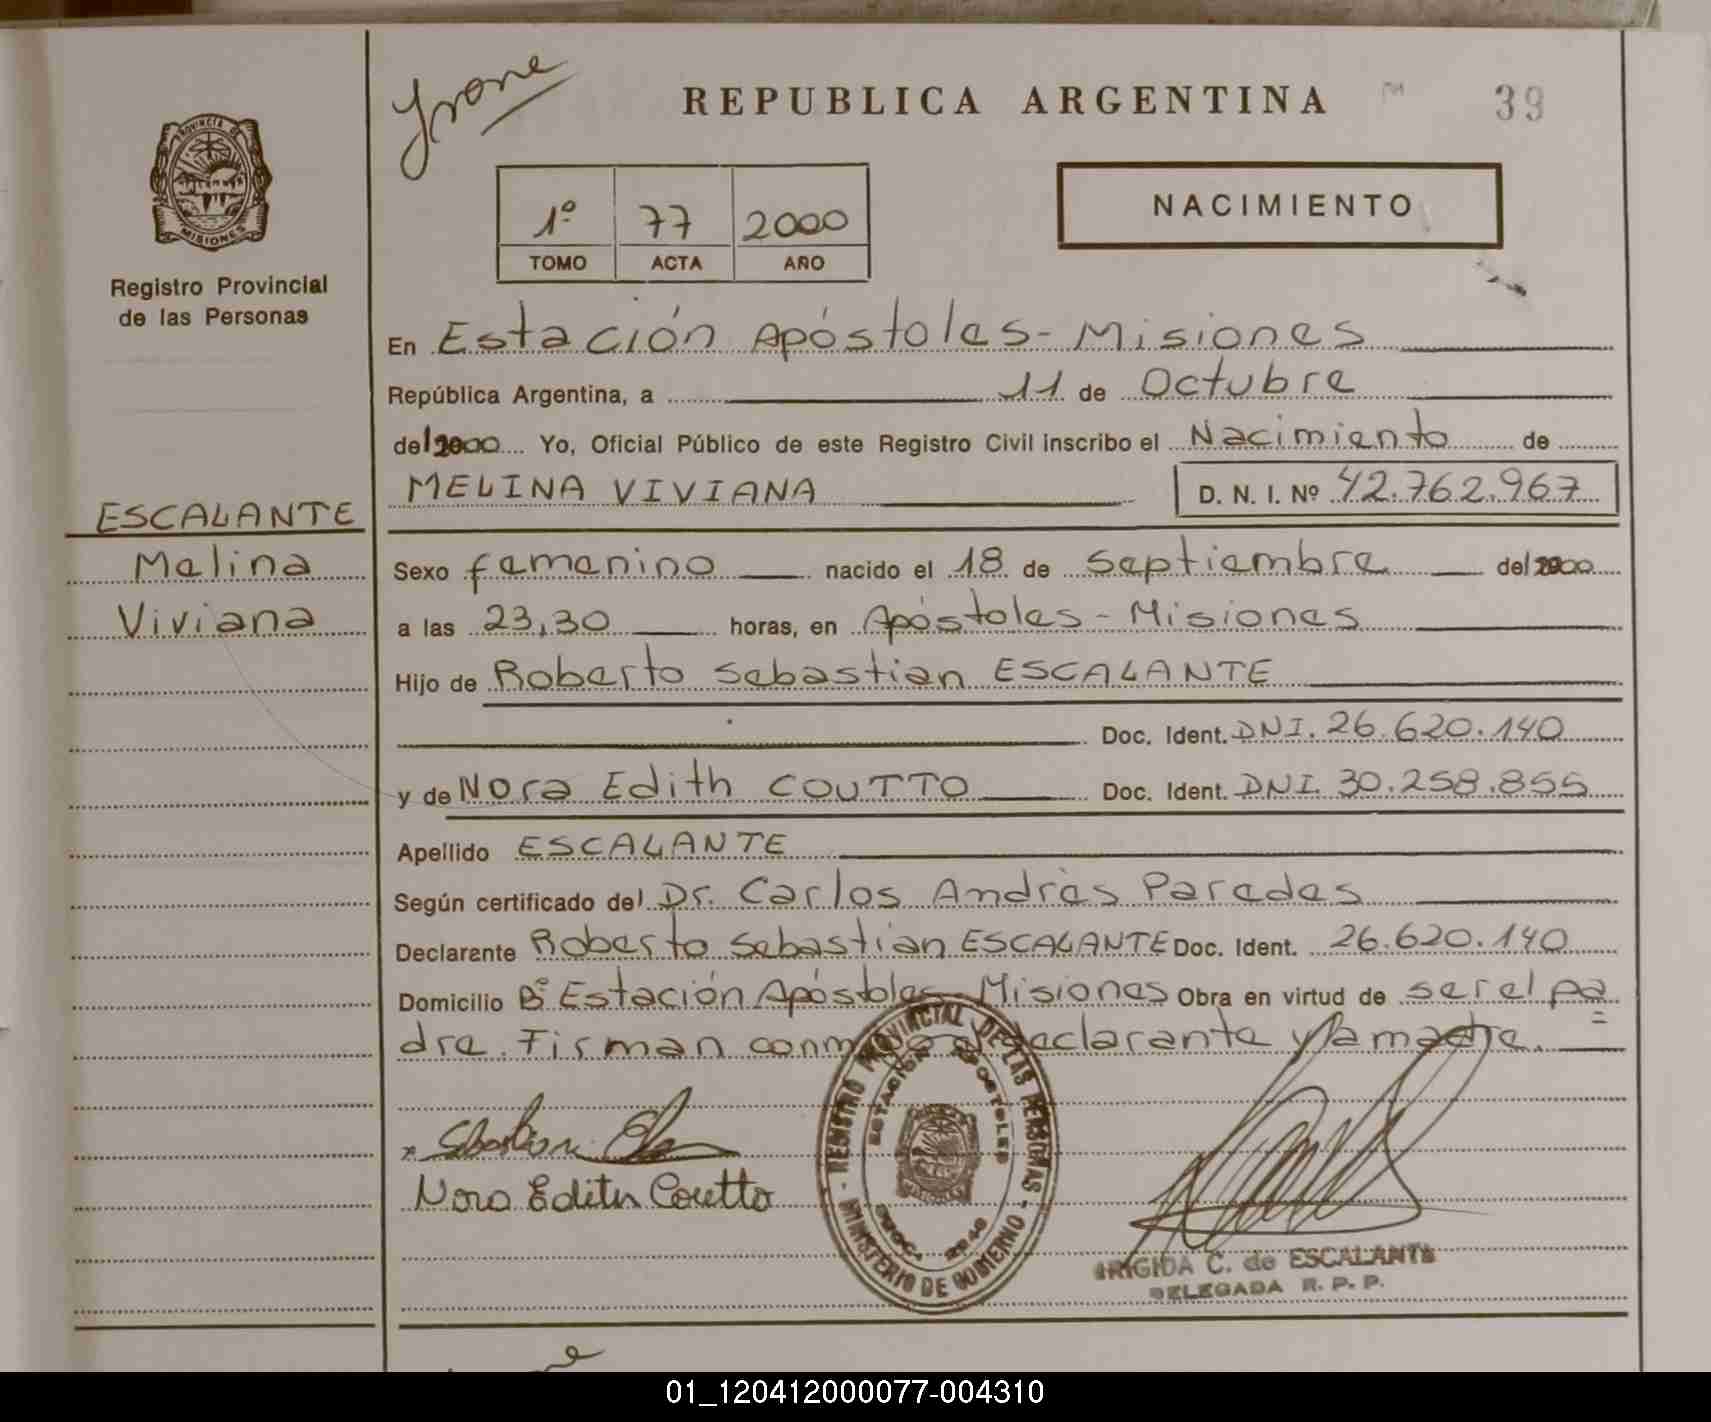 Yvone
REPUBLICA ARGENTINA
39
PROVINCIA DE
MISIONES
Registro Provincial
de las Personas
1º 77 2000
TOMO ACTA AÑO
NACIMIENTO
En Estación Apóstoles - Misiones
República Argentina, a 11 de Octubre
del 2000 Yo, Oficial Público de este Registro Civil inscribo el Nacimiento de
MELINA VIVIANA D. N. I. Nº 42.762.967
ESCALANTE
Melina
Viviana
Sexo femenino nacido el 18 de septiembre del 2000
a las 23,30 horas, en Apóstoles - Misiones
Hijo de Roberto Sebastian ESCALANTE
Doc. Ident. DNI. 26.620.140
y de Nora Edith COUTTO Doc. Ident. DNI. 30.258.855
Apellido ESCALANTE
Según certificado del Dr. Carlos Andrés Paredes
Declarante Roberto Sebastian ESCALANTE Doc. Ident. 26.620.140
Domicilio Bº Estación Apóstoles Misiones Obra en virtud de ser el pa
dre. Firman conmigo el declarante y la madre.
Nora Edith Coutto
REGISTRO PROVINCIAL DE LAS PERSONAS - MINISTERIO DE GOBIERNO -
ESTACION APOSTOLES
BRIGIDA C. de ESCALANTE
DELEGADA R. P. P.
01_120412000077-004310